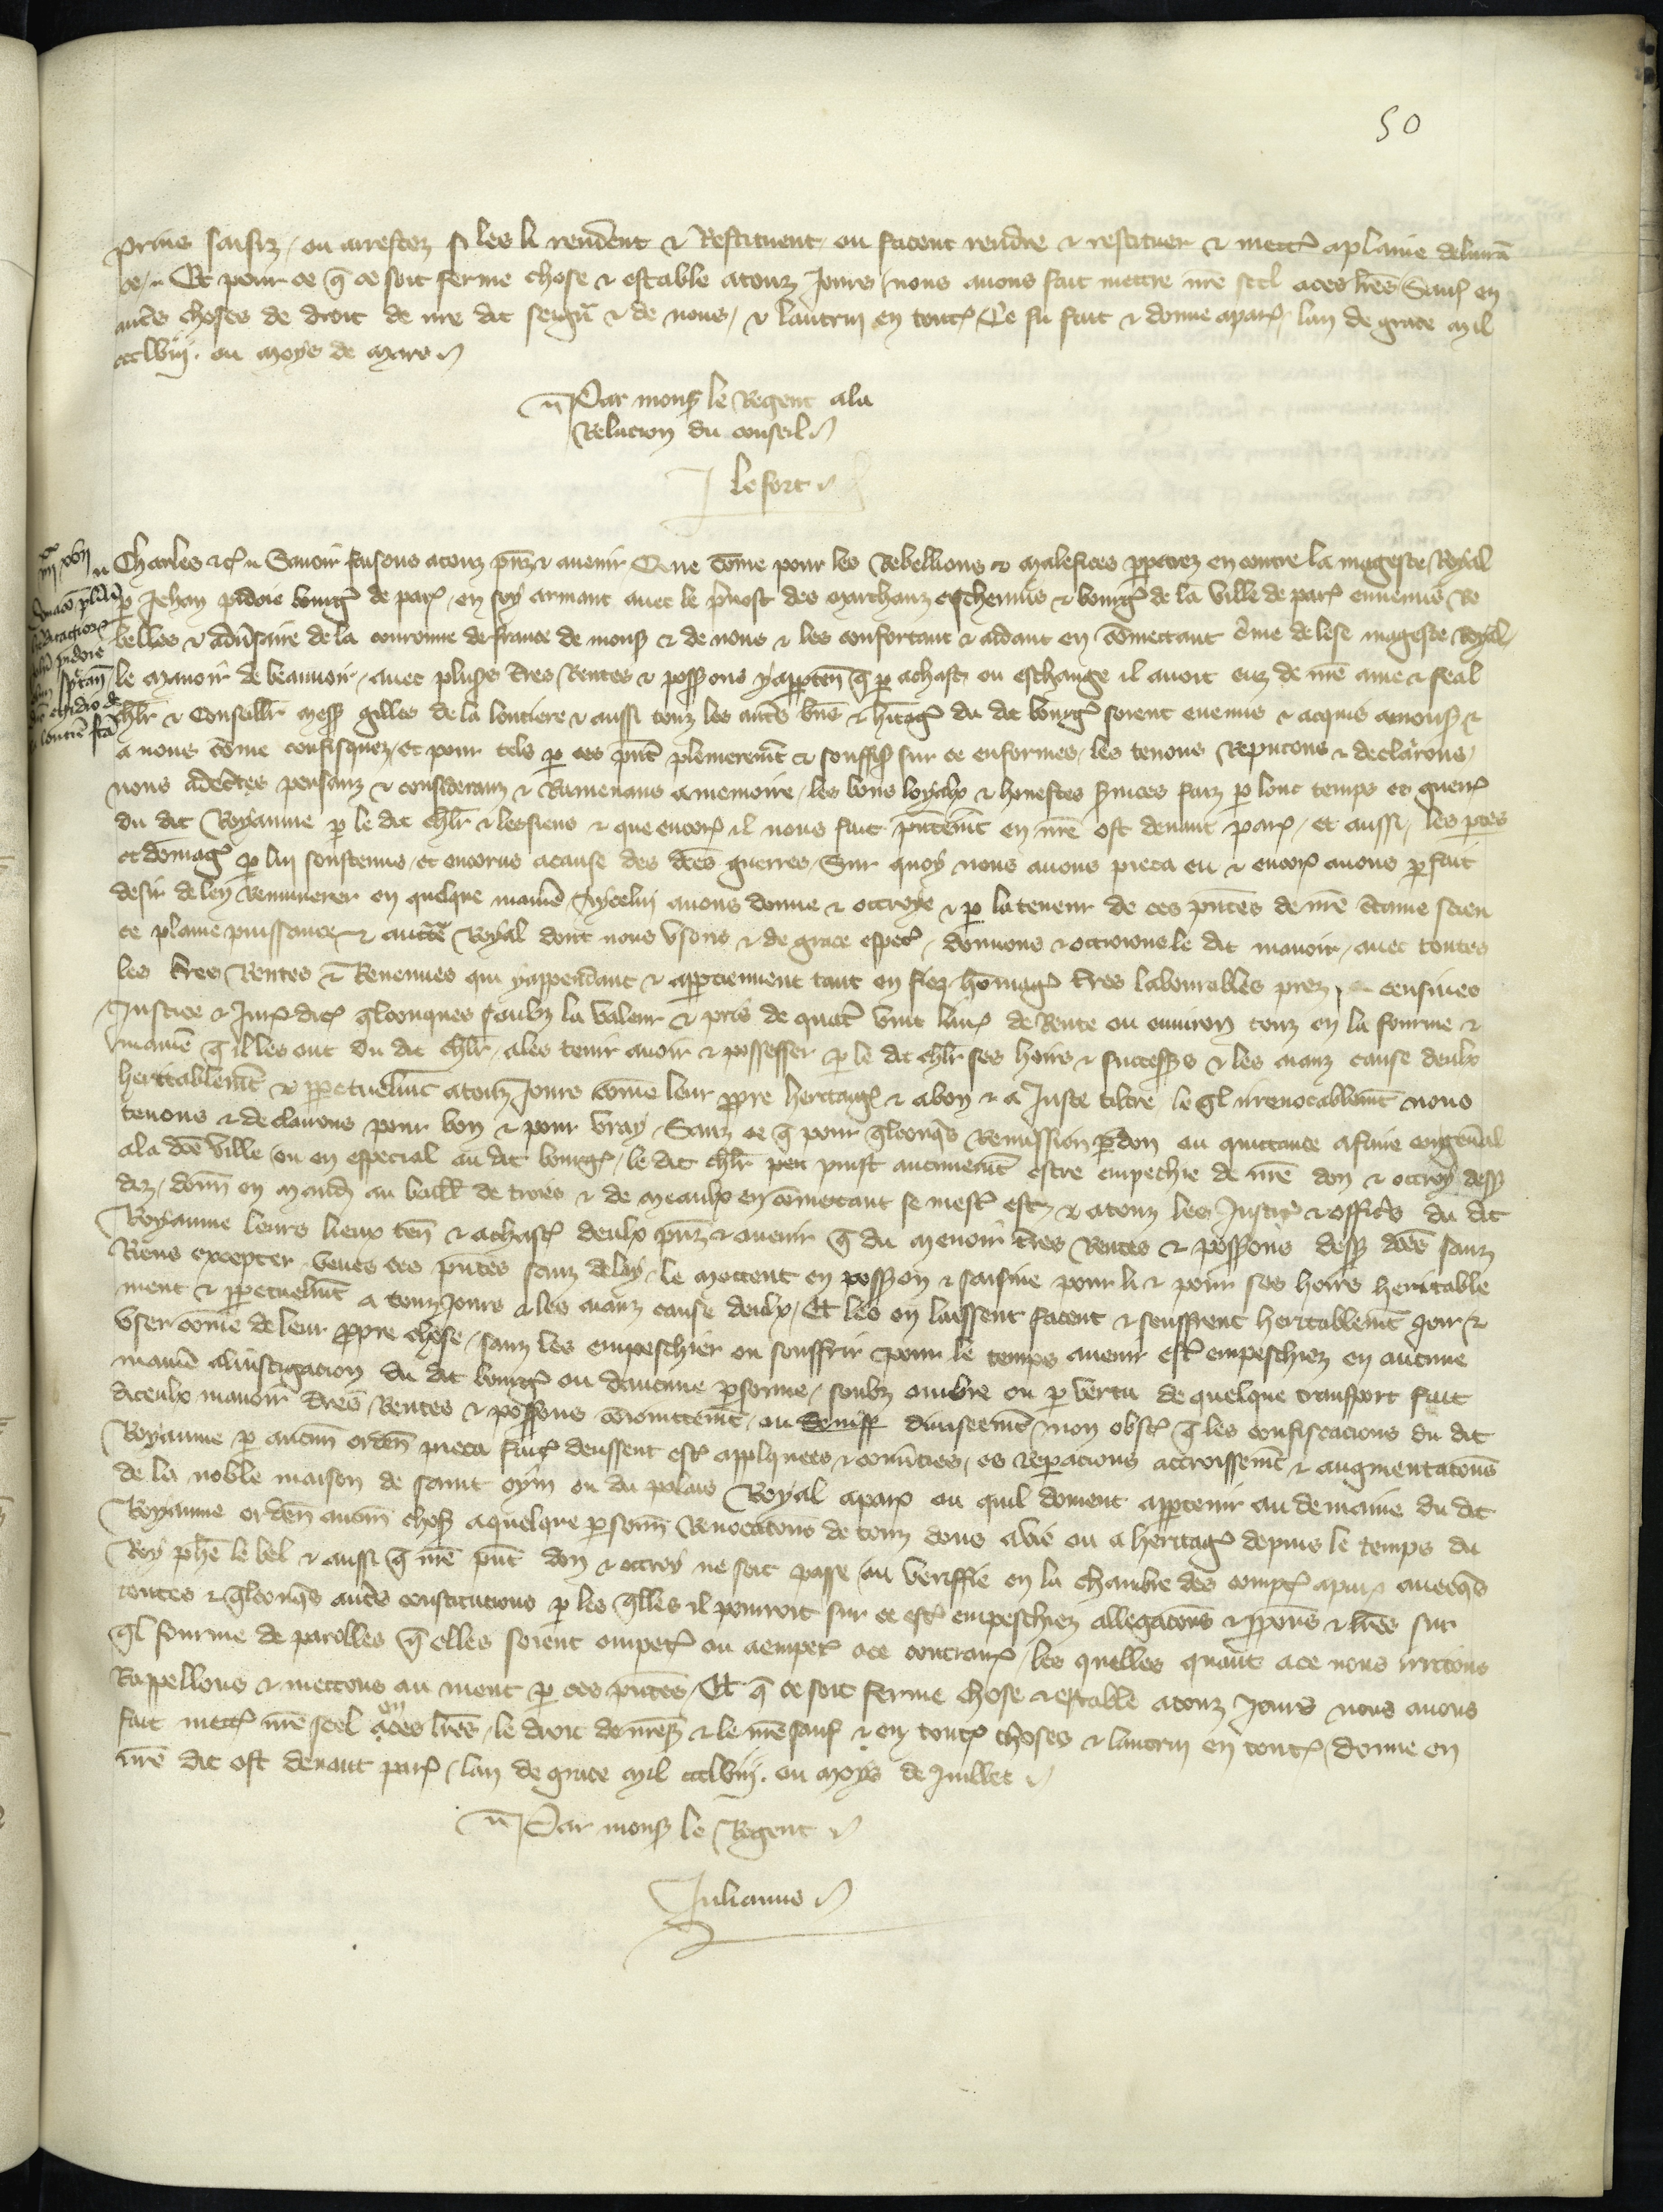 50
prins saisiz ou arrestez si les li rendent et Restituent ou facent rendre et restituer et mettre a plaine deliurā
ce // Et pour ce q̄ ce soit ferme chose et estable a touz Jours nous auons fait mettre nr̄e seel a ces lr̄es Sauf en
aut̄s choses de droit de nr̄e dit seign̄r et de nous et lautrui en tout̄ Ce fu fait et donne a par̄ lan de grace mil
ccclviij. ou moys de Mars
Par mons̄ le Regent a la
Relacion du conseil
J Le fort
iiijxx xvij
Charles etc̄ Sauoir faisons a touz pn̄z et auenir Que cōme pour les Rebellions et malefices ppetrez en contre la mageste Royal
p Jehan pizdoie bourḡ de par̄ en soy armant auec le p̄uost des marchanz escheuins et bourḡ de la ville de par̄ ennemis Re
belles et adūsaire de la couronne de france de mons̄ et de nous et les confortant et aidant en cōmettant c̄me de lese mageste Royal
le manoir de beauuoir auec plus̄s t̄res Rentes et poss̄ons y apparten̄ q̄ p achast ou eschange il auoit euz de nr̄e ame et feal
chl̄r et Conseill̄r mess̄ gilles de la loutiere et aussi touz les aut̄s bn̄s et h̄itaḡ du dit bourḡ soient euenus et acquis a mons̄ et
a nous cōme confisquez et pour telz p ces pn̄t plenierem̄t et souffis̄ sur ce enformes les tenons Reputons et declarons
nous ad̄ctes pensanz et consideranz et Ramenans a memoire les bons loyaulx et honestes s̄uices faiz p lonc temps es guerr̄
du dit Royaume p le dit chl̄r et les siens et que encor̄ il nous fait pn̄tem̄t en nr̄e ost deuant par̄ et aussi les ptes
et domaḡ p lui soustenus et encorus a cause des d̄ces guerres Sur quoy nous auons pieca eu et encor̄ auons parfait
desir de ley Remunerer en quelque manie᷑ A ycelui auons donne et octroye et p la teneur de ces pn̄tes de nr̄e c̄taine scien
ce plaine puissance et auct̄e Royal dont nous vsons et de grace espec̄ donnons et octroions le dit manoir auec toutes
les t̄res Rentes et Reuenues qui y appendant et apptiennent tant en fiez hōmaḡ t̄res labourables prez censiues
Justice et Juris dic̄ q̄lconques soubz la valeur et pris de quat̄ vint liur̄ de Rente ou enuiron touz en la fourme et
manie᷑ q̄ il les ont du dit chl̄r a les tenir auoir et possesser p le dit chl̄r ses hoirs et success̄s et les aianz cause deulx
heritablem̄t et ppetuelm̄t a touz Jours cōme leur ppre heritaḡ et a bon et a Juste tiltre le q̄l irreuocablem̄t nous
tenons et declairons pour bon et pour vray Sanz ce q̄ pour q̄lconq̄s Remission pardon ou quittance a faire en gen̄al
a la d̄ce ville ou en especial au dit bourḡ le dit chl̄r peu puist aucunem̄t estre empechie de nr̄e don et octroy dess̄
diz donn̄ en mand̄ au baill̄ de troies et de meaulx en cōmettant se mest̄ est et a touz les Justic̄ et offic̄s du dit
Royaume leurs lieux ten̄ et a chast̄ deulx pn̄z et auenir q̄ du menoir t̄res Rentes et poss̄ons dess̄ d̄ces sanz
Riens excepter veues ces pn̄tes sanz delay le mettent en poss̄on et saisine pour li et pour ses hoirs heritable
ment et ppetuelm̄t a touz Jours et les aianz cause deulx Et les en laissent facent et seuffrent heritablem̄t Joir et
vser cōme de leur ppre chose sanz les empeschier ou souffrir pour le temps auenir est̄ empeschiez en aucune
manie᷑ a linstigacion du dit bourḡ ou daucune psonne soubz ombre ou p vertu de quelque transport fait
diceulx manoir t̄res Rentes et poss̄ons cōiointem̄t ou diuiseem̄t non obst̄ q̄ les confiscacions du dit
Royaume p aucun orden̄ pieca fait̄ deussent est̄ applquees et conu̇ties es repacions accroissem̄t et augmentac̄ons
de la noble maison de saint oyn ou du palais Royal a par̄ ou quil doment apptenir au demaine du dit
Royaume orden̄ aucun̄ chos̄ a quelque psonn̄ Reuocac̄ons de touz dons a vie ou a heritaḡ depuis le temps du
Roy phe̅ le bel et aussi q̄ nr̄e pn̄t don et octroy ne soit passe ou veriffie en la chambre des compt̄ a par̄ auecq̄s
toutes et q̄lconq̄s aut̄s constitucions p les q̄lles il pourroit sur ce est̄ empeschiez allegac̄ons et pponс̄ et lr̄es sur
q̄l fourme de parolles q̄ elles soient empet̄ ou a empet̄ a ce contrair̄ les quelles quant a ce nous irritons
Rappellons et mettons au nient p ces pn̄tes Et q̄ ce soit ferme chose et estable a touz Jours nous auons
fait mett̄ nr̄e seel a ces lr̄es le droit de mons̄ et le nr̄e sauf et en tout̄ choses et lautrui en tout̄ donne en
nr̄e dit ost deuant par̄ lan de grace mil ccclviij. ou moys de Juillet
Par mons̄ le Regent
Julianus